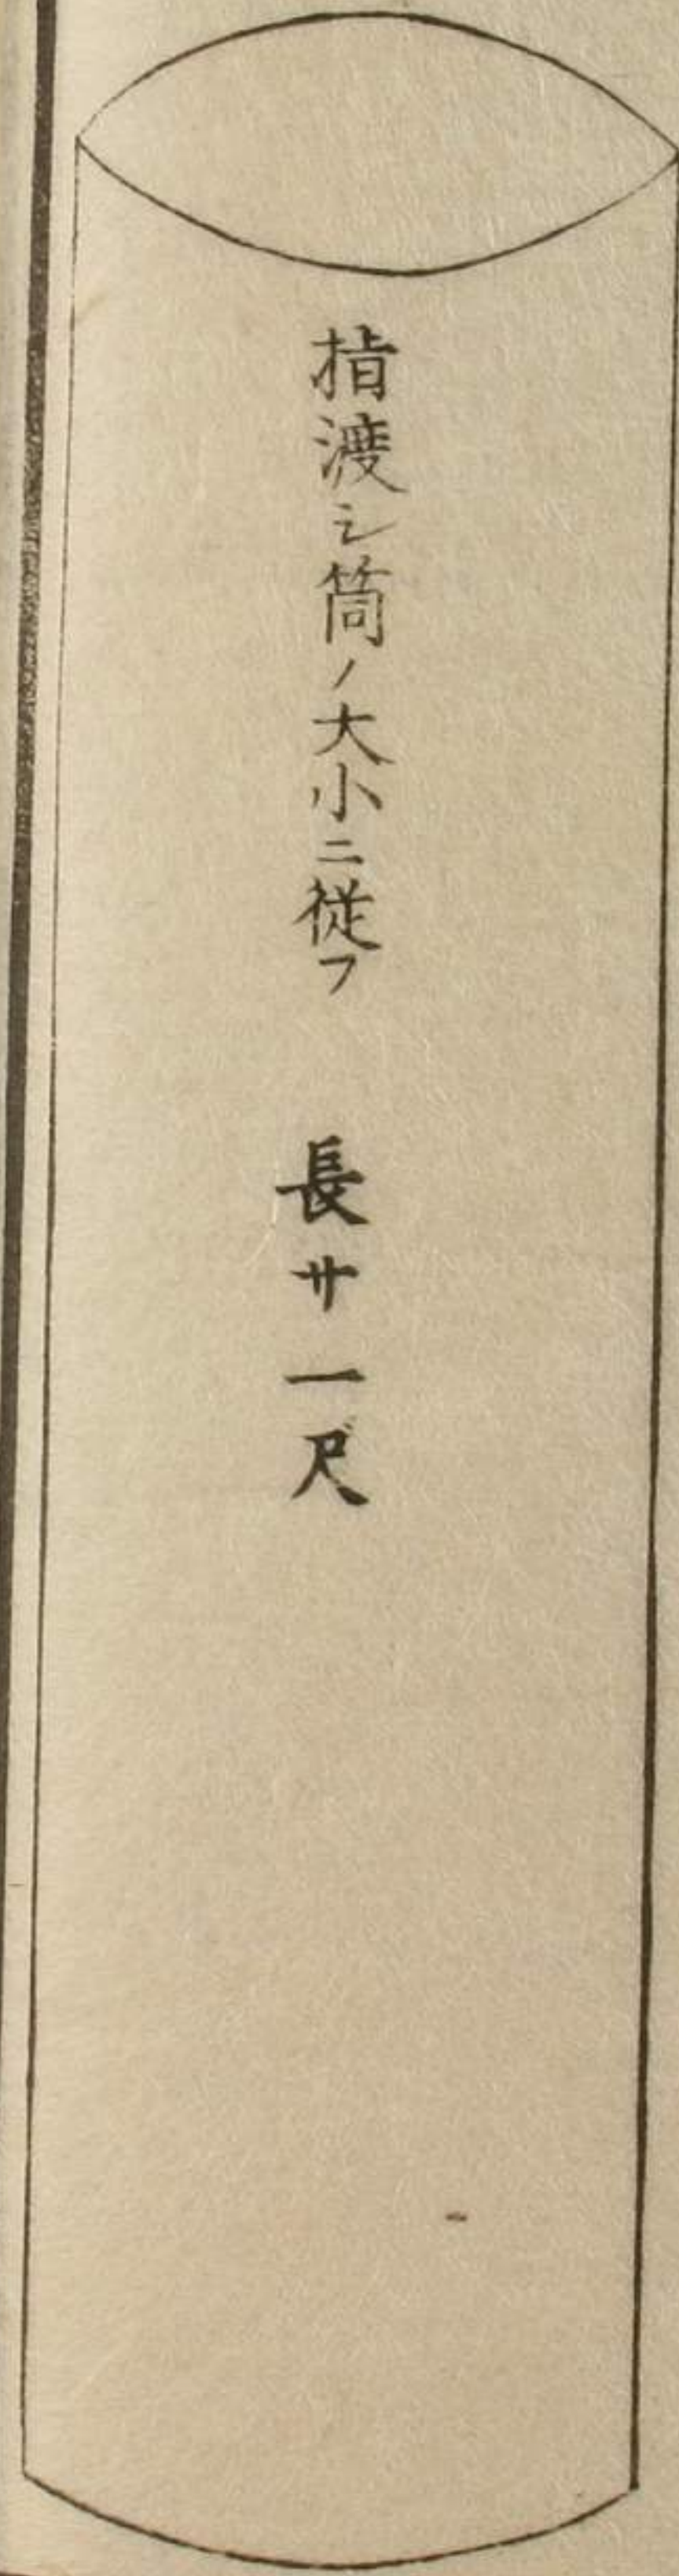 指渡シ筒ノ大小ニ従フ
長サ一尺